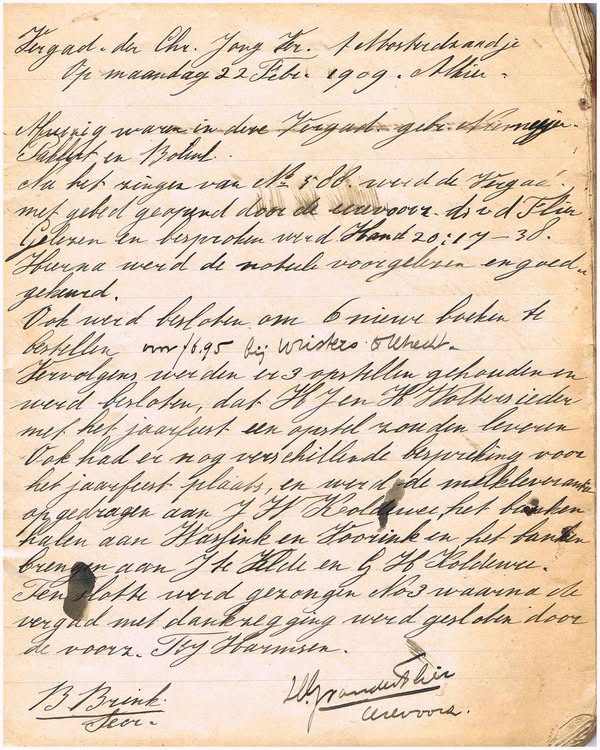 Vergad. der Chr. Jong Ver. 't Mosterdzaadje
Op maandag 22 Febr. 1909. Alhier.
Afwezig waren in deze Vergad. gebr.
en
Na het zingen van No 588 werd de Vergad.
met gebed geopend door de eerevoorz. ds v d Flier.
Gelezen en besproken werd Hand 20:17-38.
Hierna werd de notule voorgelezen en goed-
gekeurd.
Ook werd besloten om 6 nieuwe boeken te
bestellen voor f6.95 bij Wristers Utrecht.
Vervolgens werden er 3 opstellen gehouden en
werd besloten, dat H J en H Wolters ieder
met het jaarfeest een opstel zouden leveren
Ook had er nog verschillende bespreking voor
het jaarfeest plaats, en werd de melkleverantie
opgedragen aan J H Koldewee, het banken
halen aan Hassink en Voorink en het banken
brengen aan J te Velde en G H Koldewee.
Ten slotte werd gezongen No 3 waarna de
vergad met dankzegging werd gesloten door
de voorz. Harmsen.
B Brink
Secr.
vander Flier
eerevoorz.